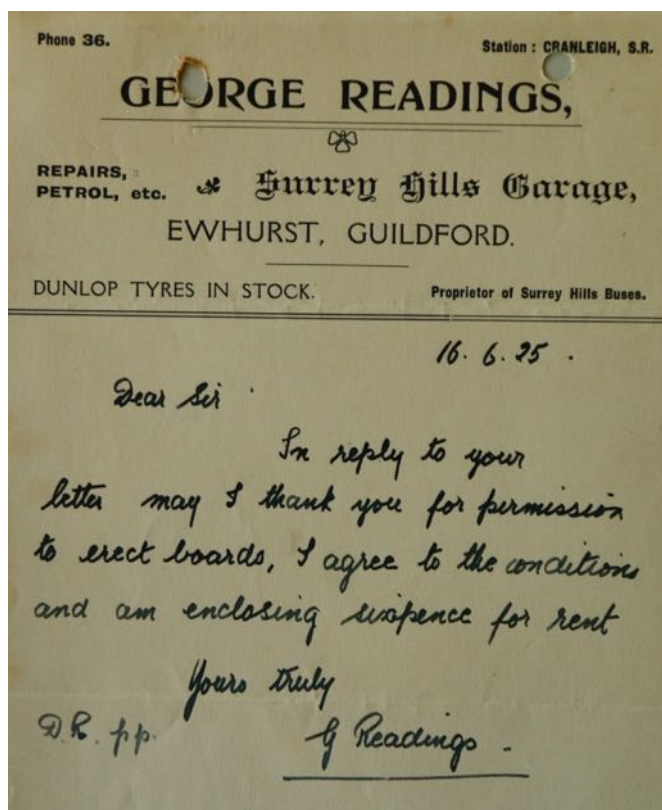 Phone 36.
Station : CRANLEIGH, S.R.
GEORGE READINGS,
REPAIRS,
PETROL, etc.
Surrey Hills Garage,
EWHURST, GUILDFORD.
DUNLOP TYRES IN STOCK.
Proprietor of Surrey Hills Buses.
16. 6. 25.
Dear Sir
In reply to your
letter may I thank you for permission
to erect boards, I agree to the conditions
and am enclosing sixpence for rent
Yours truly
D.R. pp.
G Readings.